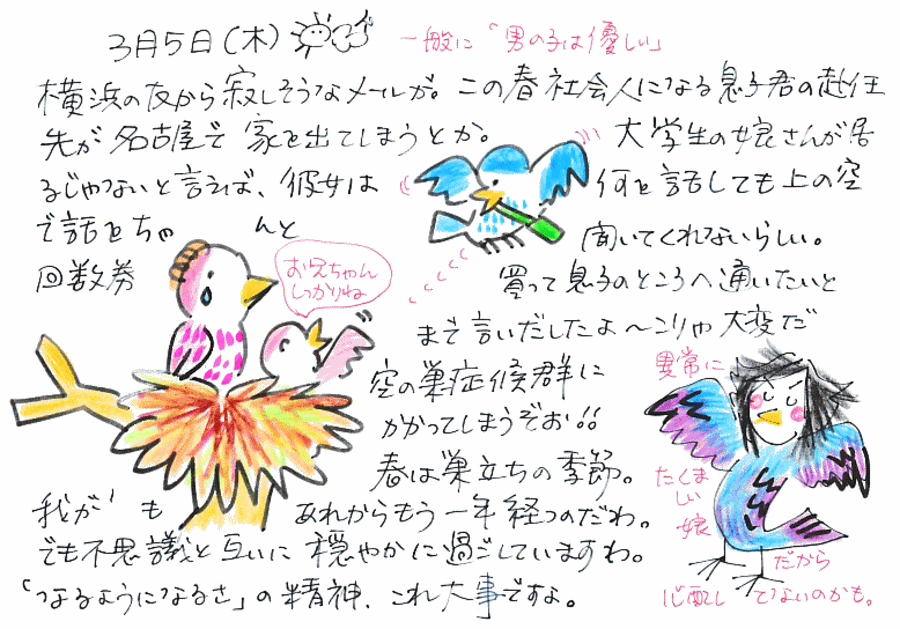 3月5日(木)
一般に「男の子は優しい」
横浜の友から寂しそうなメールが。この春社会人になる息子君の赴任
先が名古屋で家を出てしまうとか。 大学生の娘さんが居
るじゃないと言えば、彼女は 何を話しても上の空
で話をちゃんと 聞いてくれないらしい。
回数券 買って息子のところへ通いたいと
お兄ちゃん
しっかりね
まで言いだしたよ〜こりゃ大変だ
空の巣症候群に
かかってしまうぞお!!
春は巣立ちの季節。
我が も あれからもう一年経つのだわ。
でも不思議と互いに穏やかに過ごしていますわ。
「なるようになるさ」の精神、これ大事ですよ。
異常に
たくま
しい
娘
だから
心配し てないのかも。